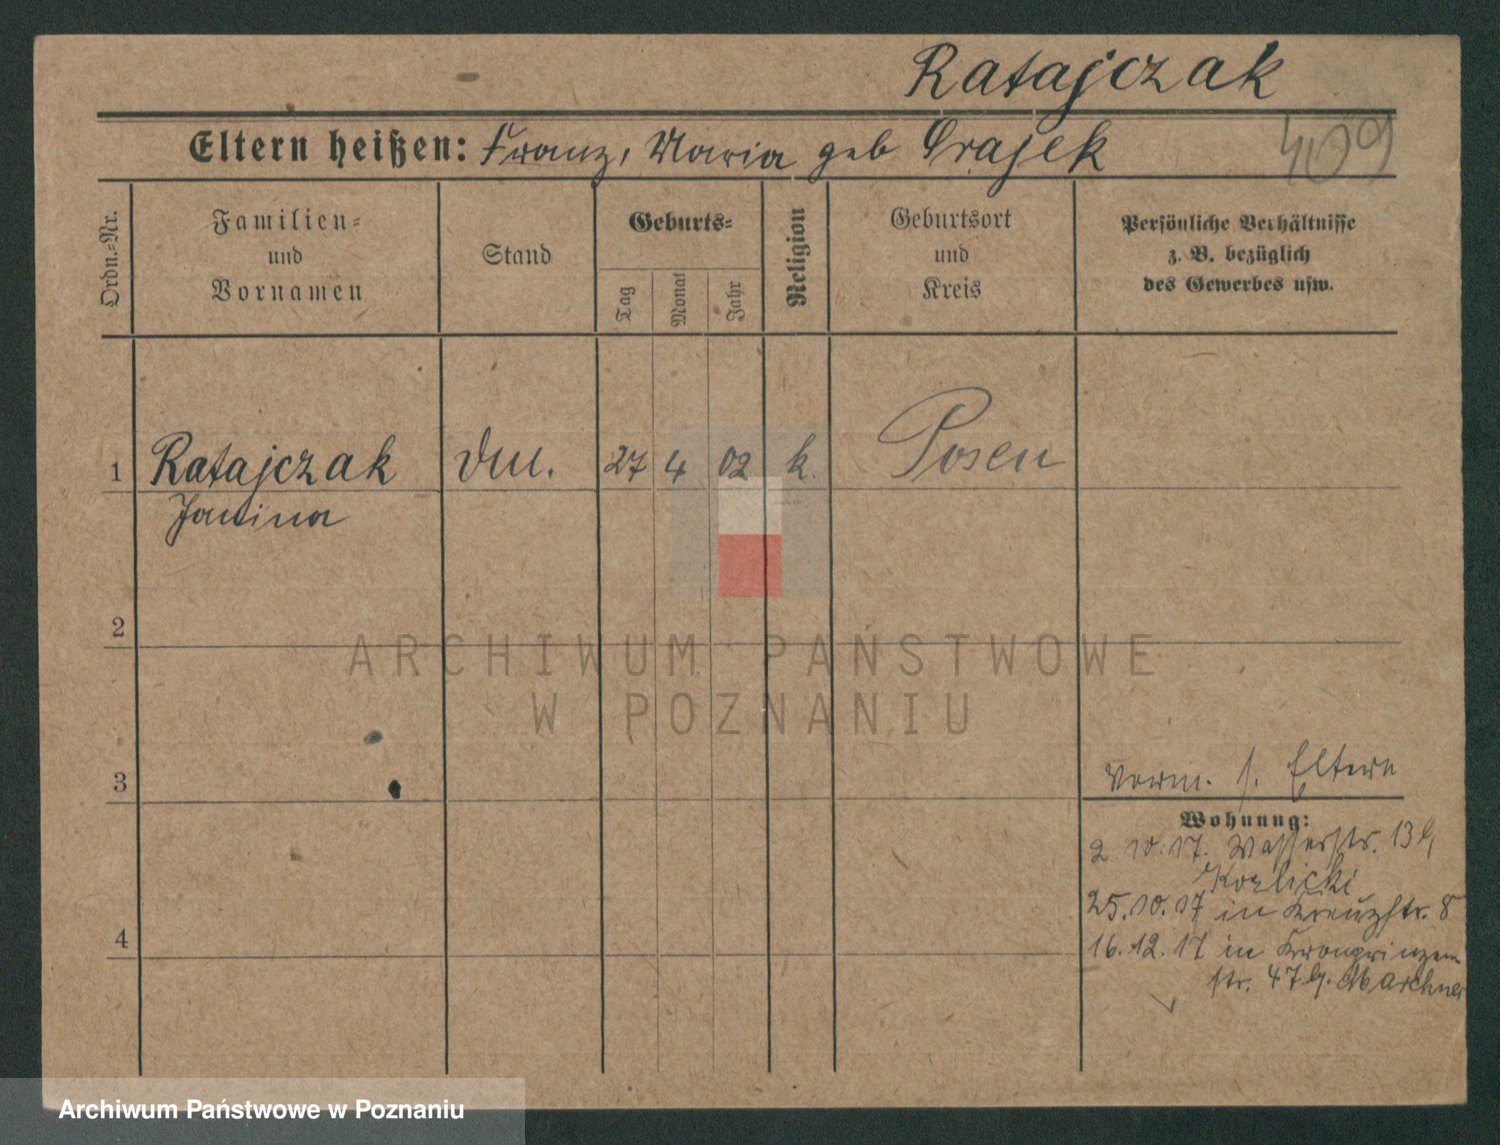 Ratajczak
Eltern heißen: Franz, Maria geb Grajek
409
Ordn.-Nr.
Familien-
und
Vornamen
Stand
Geburts-
Tag
Monat
Jahr
Religion
Geburtsort
und
Kreis
Persönliche Verhältnisse
z. B. bezüglich
des Gewerbes usw.
1 Ratajczak 27 4 02 k. Posen
Janina
2
ARCHIWUM PAŃSTWOWE
W POZNANIU
3
vorm. s. Eltern
Wohnung:
2.10.17. Wasserstr. 13
Kozlicki
25.10.17 in Kreuzstr. 8
4
16.12.17 in Kronprinzen
str. 47 b. Marchner
Archiwum Państwowe w Poznaniu